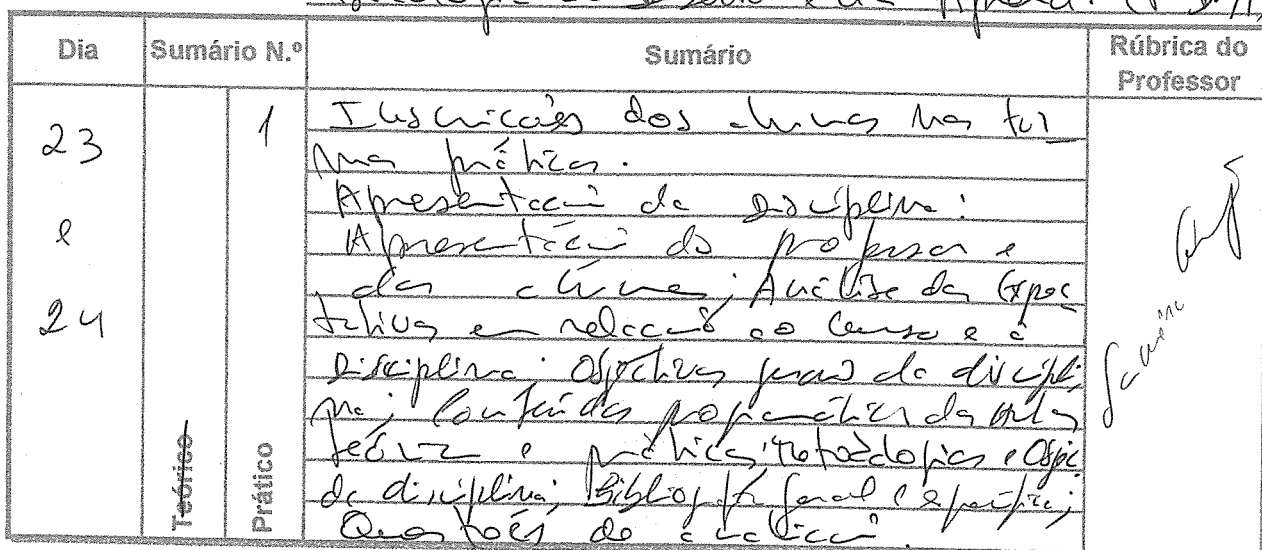 Dia
Sumário N.º
Sumário
Rúbrica do
Professor
23
e
24
Teórico
1
Prático
Inscrições dos alunos nas tur
mas práticas.
Apresentação da Disciplina:
Apresentação do professor e
dos alunos; Análise das Expec
tativas em relação ao Curso e à
Disciplina; Objectivos gerais da discipli
na; Conteúdos programáticos das aulas
teóricas e práticas; Metodologias e
da disciplina; Bibliografia geral e específica;
Questões de avaliação.